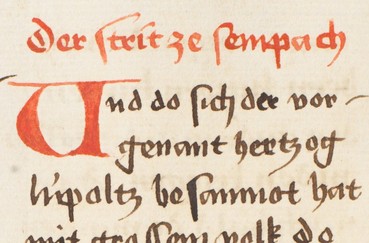 Der strit ze sempach
Und do sich der vor-
genant hertzog
lúpoltz besamnot hat
mit grossem volk de